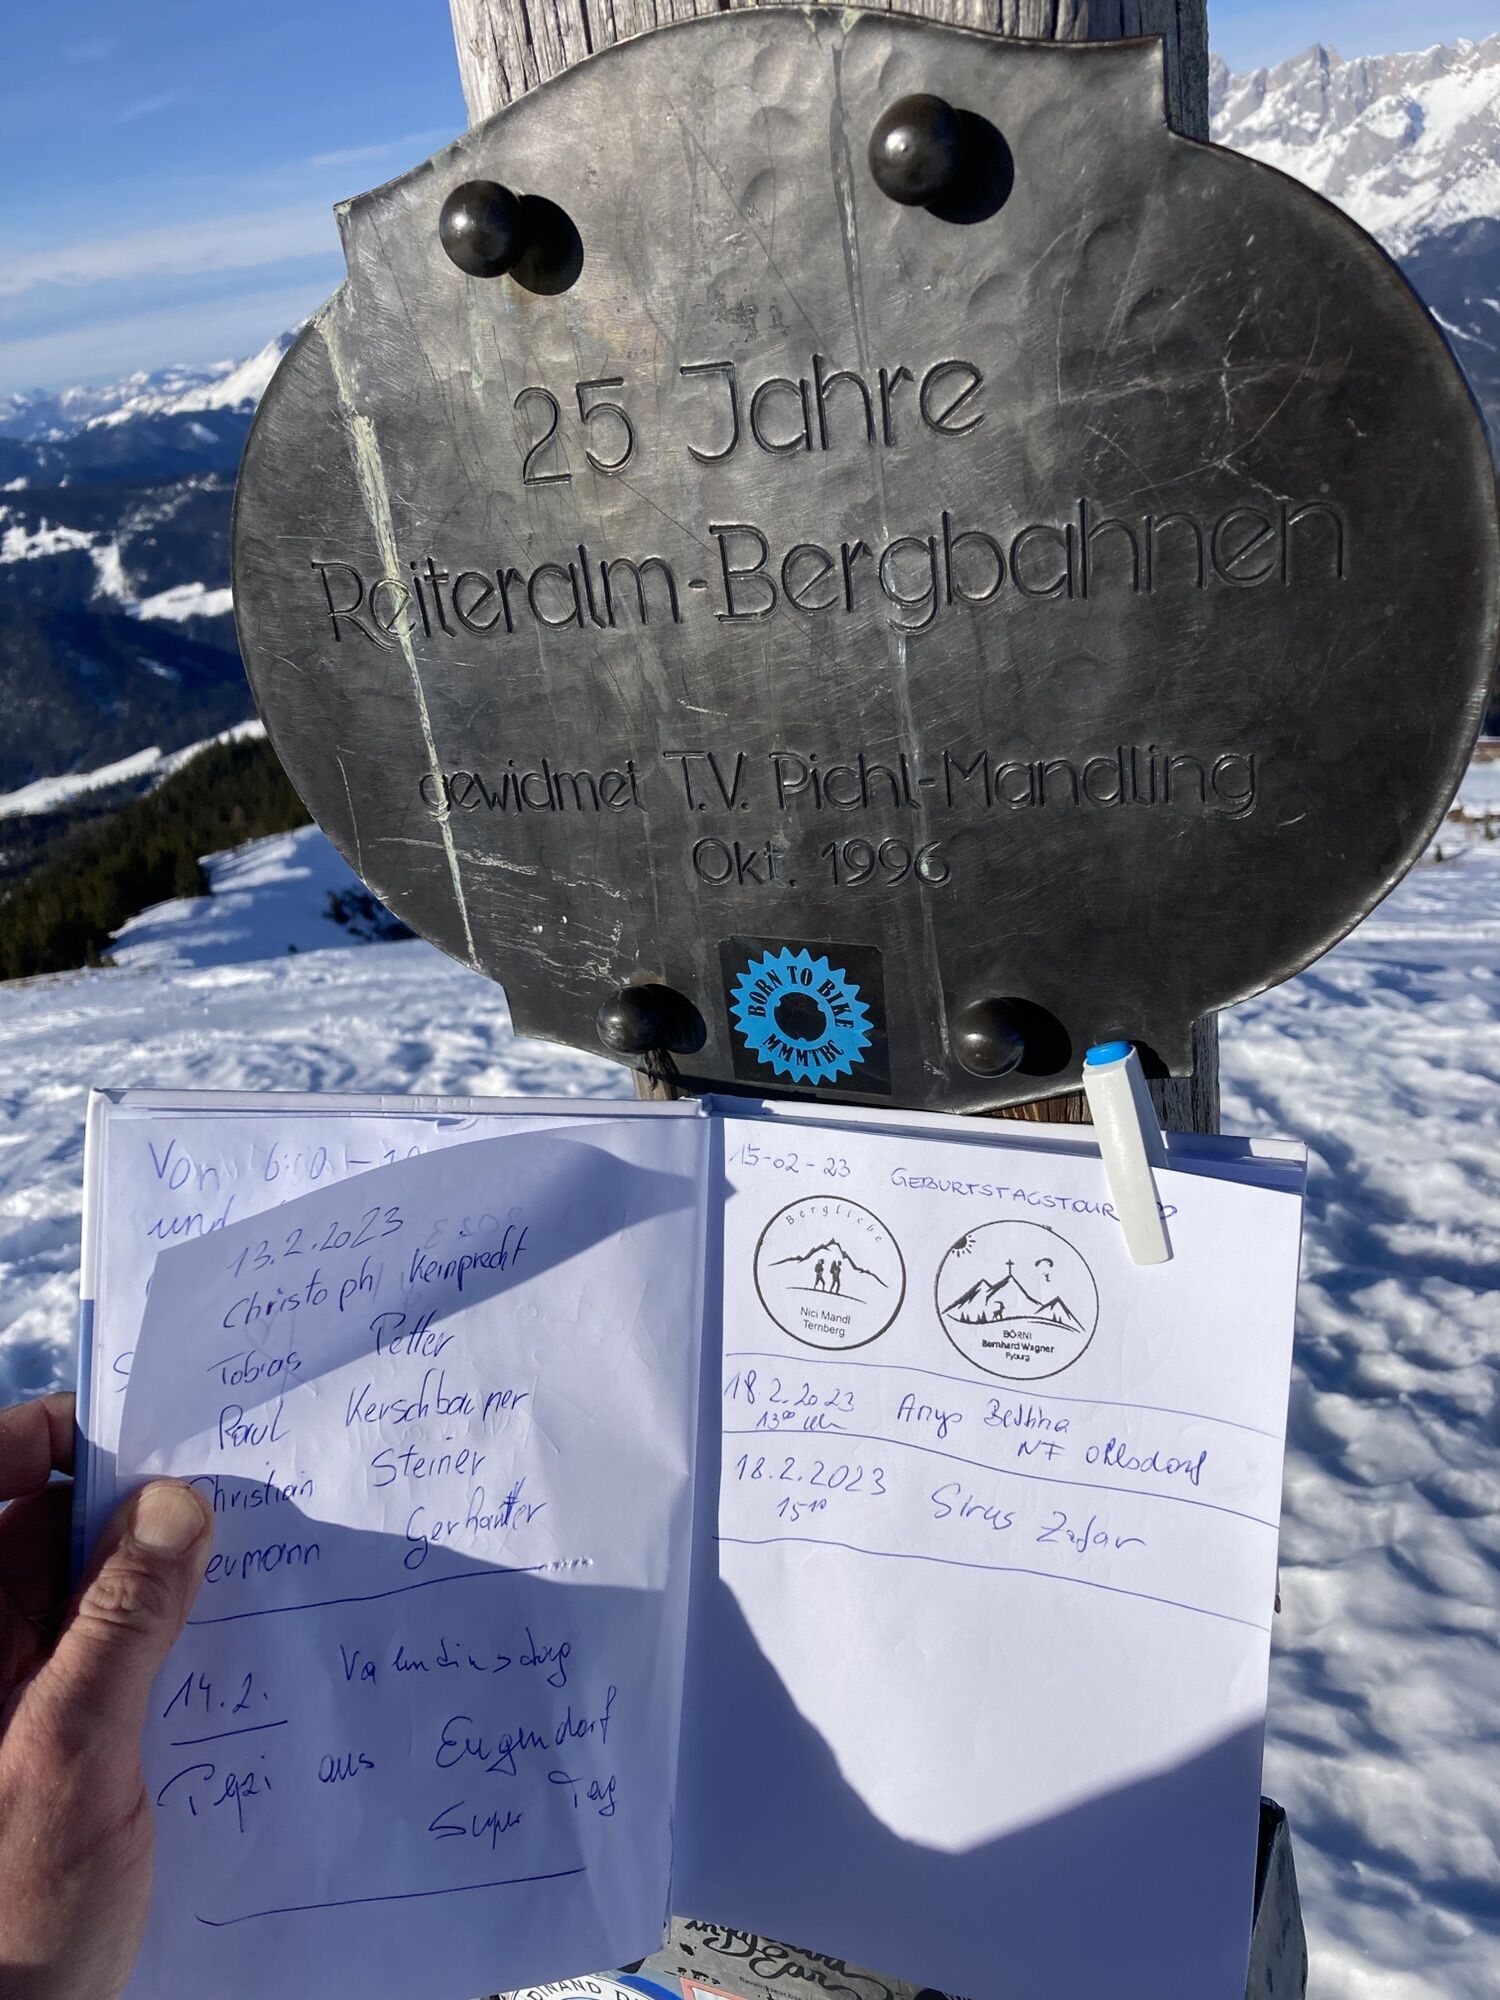 25 Jahre
Reiteralm-Bergbahnen
gewidmet T.V. Pichl-Mandling
Okt. 1996
BORN TO BIKE
MMMTBC
Von
und
13.2.2023
Christoph Keinprecht
Tobias Petter
Paul Kerschbaumer
Christian Steiner
ermann Gerhartter
14.2. Valentinstag
Pepi aus Eugendorf
Super Tag
15-02-23 GEBURTSTAGSTOUR
Bergliebe
Nici Mandl
Ternberg
BÖRNI
Bernhard Wagner
Pyburg
18.2.2023 Bettina
13⁰⁰ Uhr NF Ohlsdorf
18.2.2023 Sirus Zafar
15¹⁰